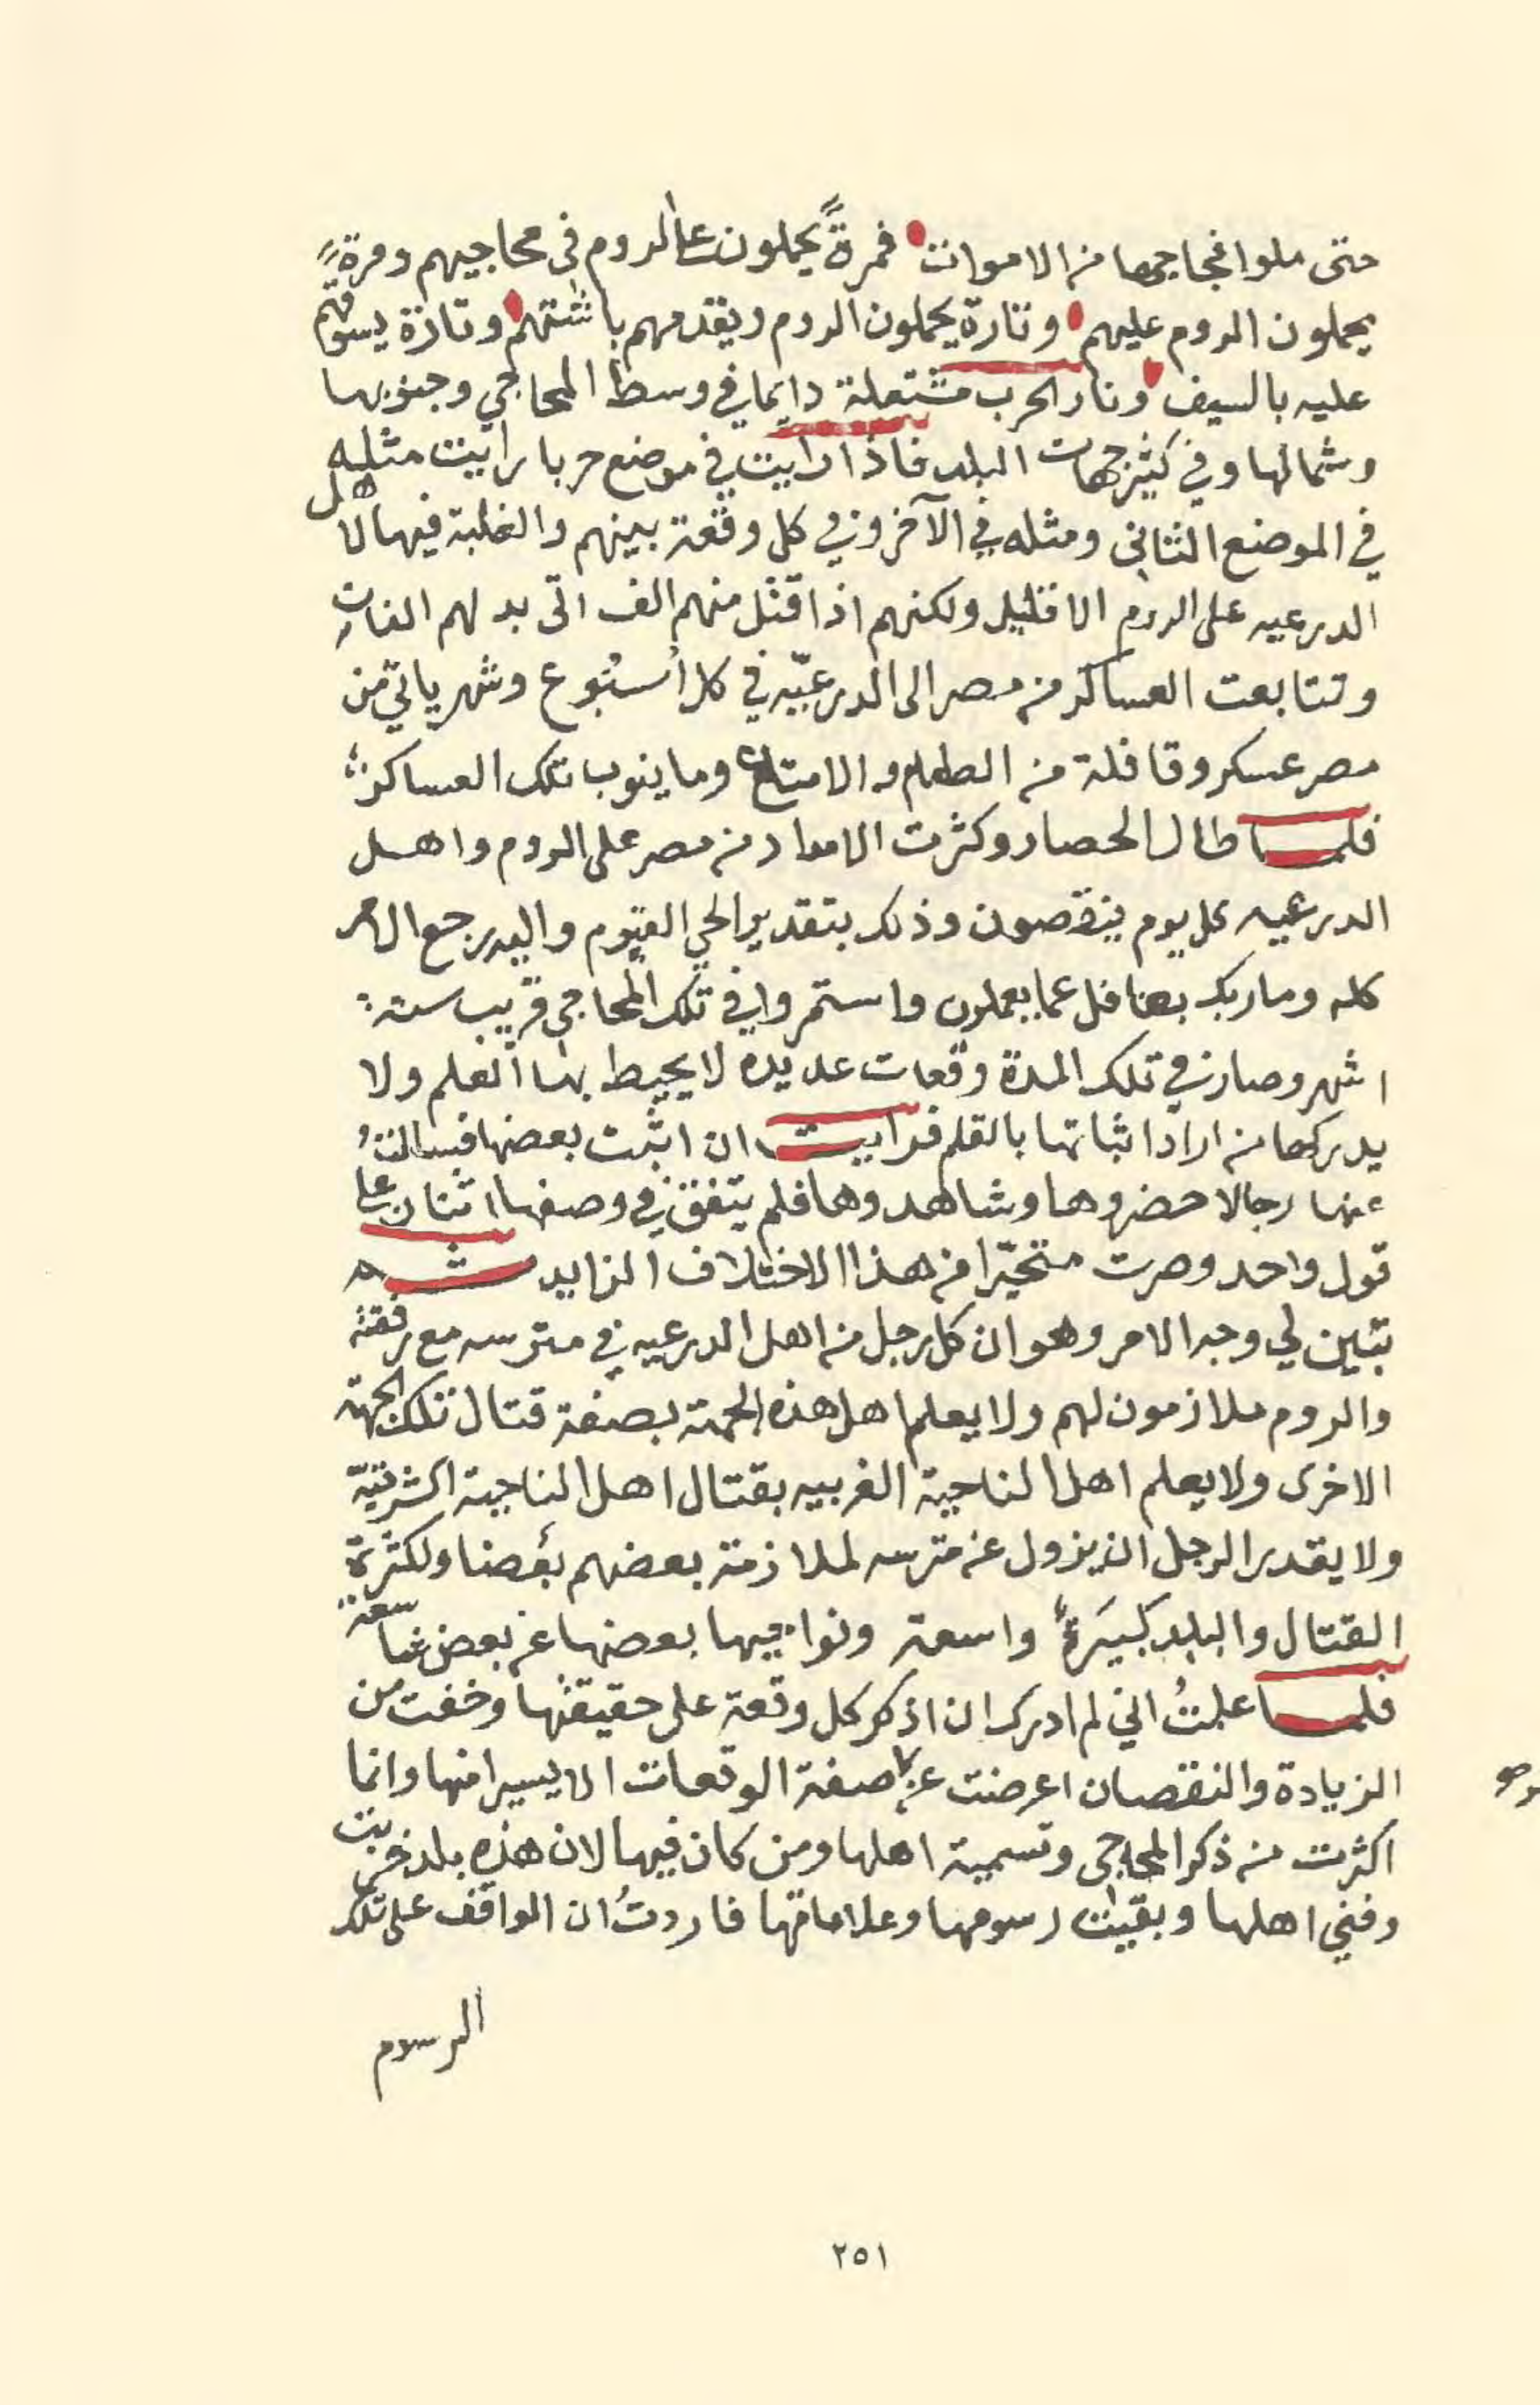 حتى ملوا فجاجها من الاموات فمرةً يحملون على الروم في محاجيهم ومرةً
يحملون الروم عليهم وتارة يحملون الروم ويقدمهم باشتهم وتارة يسوقهم
عليه بالسيف ونار الحرب مشتعلة دايما في وسط المحاجي وجنوبها
وشمالها وفي كثير جهات البلد فاذا رايت في موضع حربا رايت مثله
في الموضع الثاني ومثله في الآخر وفي كل وقعة بينهم والغلبة فيها لاهل
الدرعيه على الروم الا قليل ولكنهم اذا قتل منهم الف اتى بدلهم الفات
وتتابعت العساكر من مصر الى الدرعيّه في كل أسبُوع وشهر ياتي من
مصر عسكر وقافلة من الطعام والامتاع وما ينوب تلك العساكر
فلما طال الحصار وكثرت الامداد من مصر على الروم واهل
الدرعيه كل يوم ينقصون وذلك بتقدير الحي القيوم واليه يرجع الامر
كله وما ربك بغافل عما يعملون واستمروا في تلك المحاجي قريب ستة
اشهر وصار في تلك المدة وقعات عديده لا يحيط بها العلم ولا
يدركها من اراد اثباتها بالقلم فرايت ان اثبت بعضها فسالتُ
عنها رجالا حضروها وشاهدوها فلم يتفق في وصفها اثنان على
قول واحد وصرت متحيّرا من هذا الاختلاف الزايد ثم
تبين لي وجه الامر وهو ان كل رجل من اهل الدرعيه في مترسه مع رفقته
والروم ملازمون لهم ولا يعلم اهل هذه الجهة بصفة قتال تلك الجهة
الاخرى ولا يعلم اهل الناحية الغربيه بقتال اهل الناحية الشرقيّة
ولا يقدر الرجل ان يزول عن مترسه لملازمة بعضهم بعضا ولكثرة
القتال والبلد كبيَرةٌ واسعة ونواحيها بعضها عن بعض شاسعة
فلما علمتُ اني لم ادرك ان اذكر كل وقعة على حقيقتها وخفت من
الزيادة والنقصان اعرضت عن صفة الوقعات الا يسيرا منها وانما
اكثرت من ذكر المحاجي وتسمية اهلها ومن كان فيها لان هذه بلد خربت
وفني اهلها وبقيت رسومها وعلاماتها فاردتُ ان الواقف على تلك
الرسوم
٢٥١